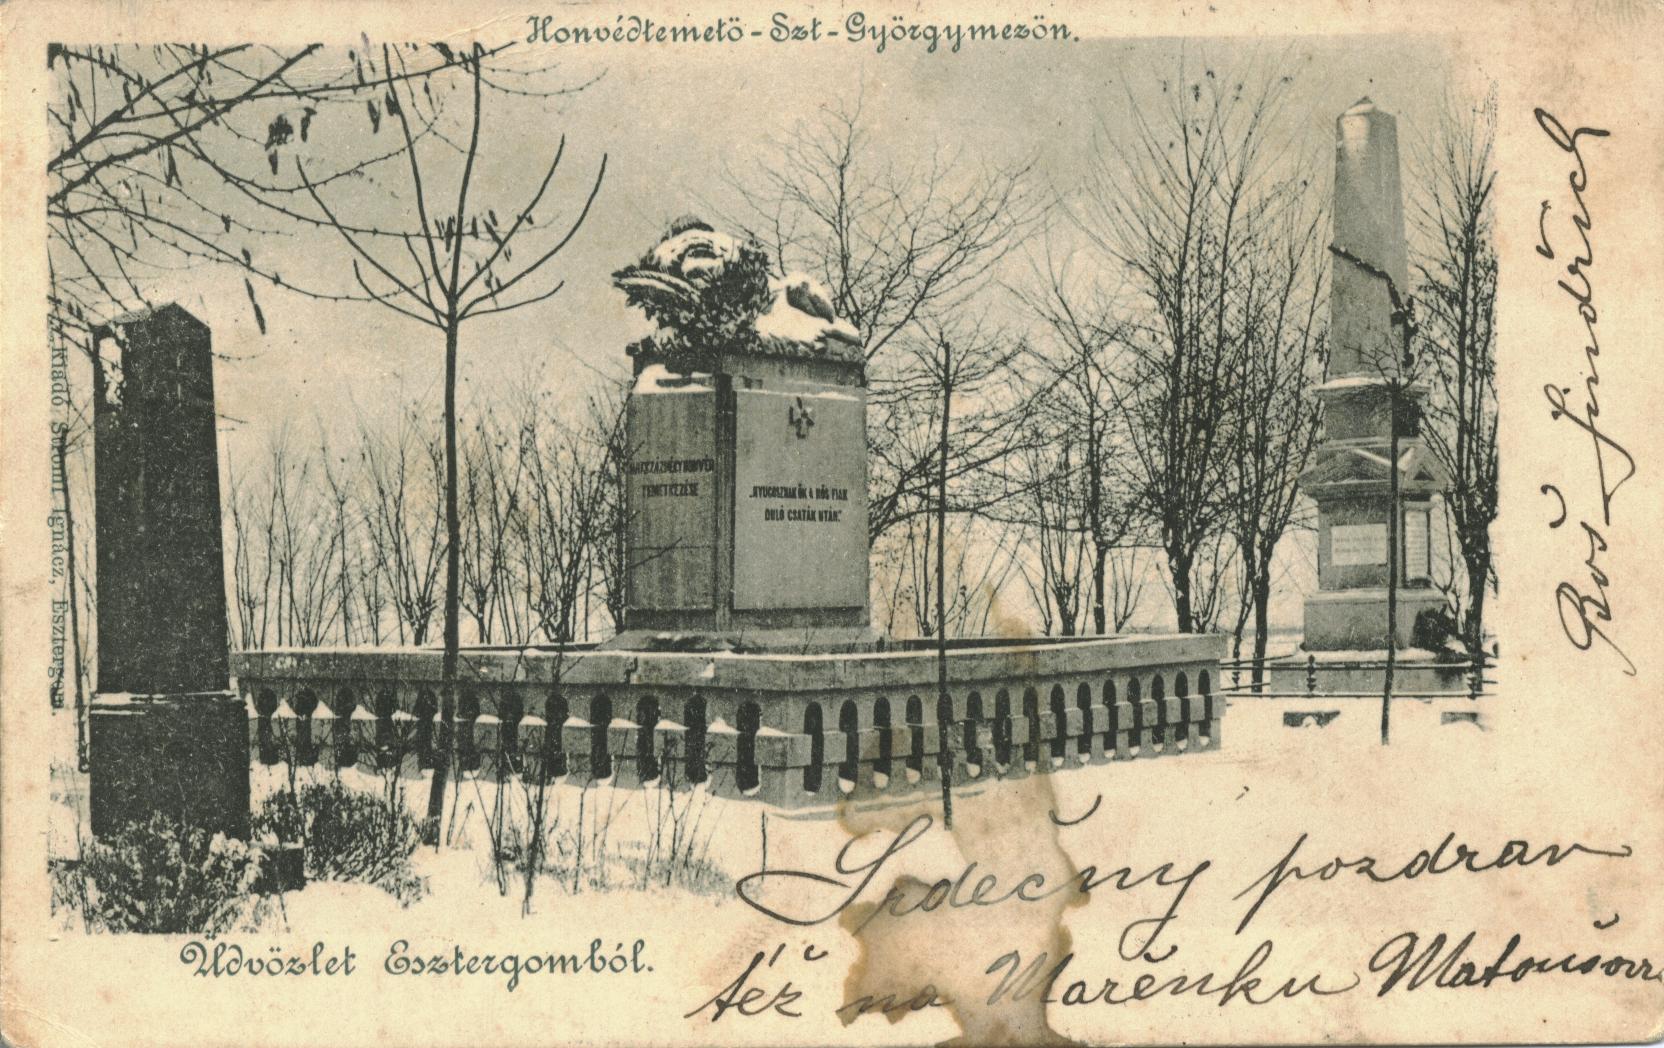 Honvédtemetö-Szt-Györgymezön.
Kiadó Sutonn Ignácz, Esztergom.
HATSZÁZNÉGY HONVÉD
TEMETKEZÉSE
„NYUGOSZNAK ŐK A HŐS FIAK
DULÓ CSATÁK UTÁN.”
Üdvözlet Esztergomból.
Srdečný pozdrav
též na Mařenku
Jindřich